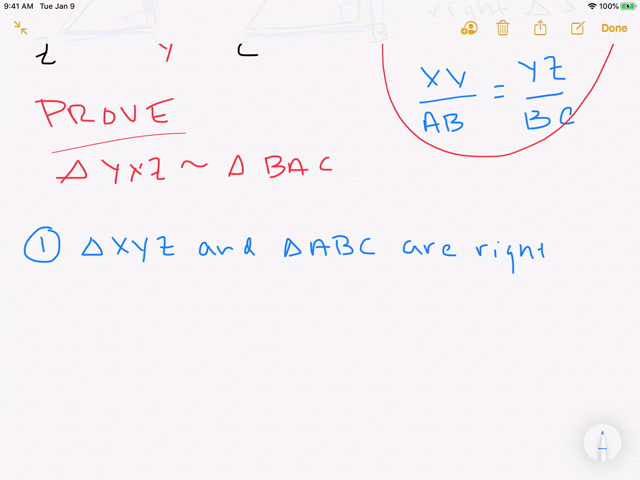 9:41 AM Tue Jan 9
100%
right Δ Δ
B
Done
Z Y C
XY / AB = YZ / BC
PROVE
Δ YXZ ~ Δ BAC
① Δ XYZ and Δ ABC are right